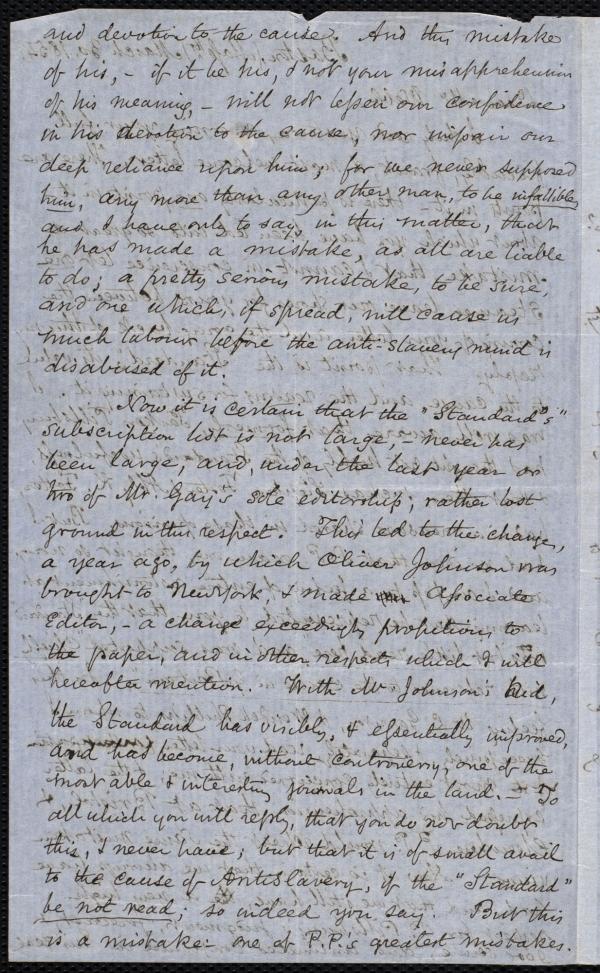 and devotion to the cause. And this mistake
of his, - if it be his, & not your misapprehension
of his meaning, - will not lessen our confidence
in his devotion to the cause, nor impair our
deep reliance upon him; for we never supposed
him, any more than any other man, to be infallible,
and I have only to say, in this matter, that
he has made a mistake, as all are liable
to do; a pretty serious mistake, to be sure,
and one which, if spread, will cause us
much labour before the anti-slavery mind is
disabused of it.
Now it is certain that the "Standard's"
subscription list is not large, - never has
been large, and, under the last year or
two of Mr. Gay's sole editorship, rather lost
ground in this respect. This led to the change,
a year ago, by which Oliver Johnson was
brought to New York, & made Associate
Editor, - a change exceedingly propitious to
the paper, and in other respects which I will
hereafter mention. With Mr. Johnson's aid,
the Standard has visibly, & essentially improved,
and has become, without controversy, one of the
most able & interesting journals in the land. - To
all which you will reply, that you do not doubt
this, & never have; but that it is of small avail
to the cause of AntiSlavery, if the "Standard"
be not read; so indeed you say. But this
is a mistake - one of P.P.'s greatest mistakes.